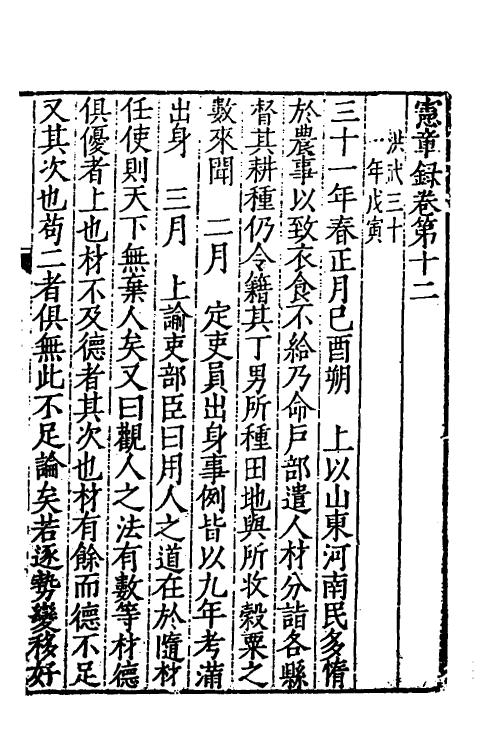 憲章録卷第十二
洪武三十
一年戊寅
三十一年春正月己酉朔　上以山東河南民多惰
於農事以致衣食不給乃命戶部遣人材分詣各縣
督其耕種仍令籍其丁男所種田地與所收穀粟之
數來聞　二月　定吏員出身事例皆以九年考滿
出身　三月　上諭吏部臣曰用人之道在於隨材
任使則天下無棄人矣又曰觀人之法有數等材德
俱優者上也材不及德者其次也材有餘而德不足
又其次也苟二者俱無此不足論矣若逐勢變移好